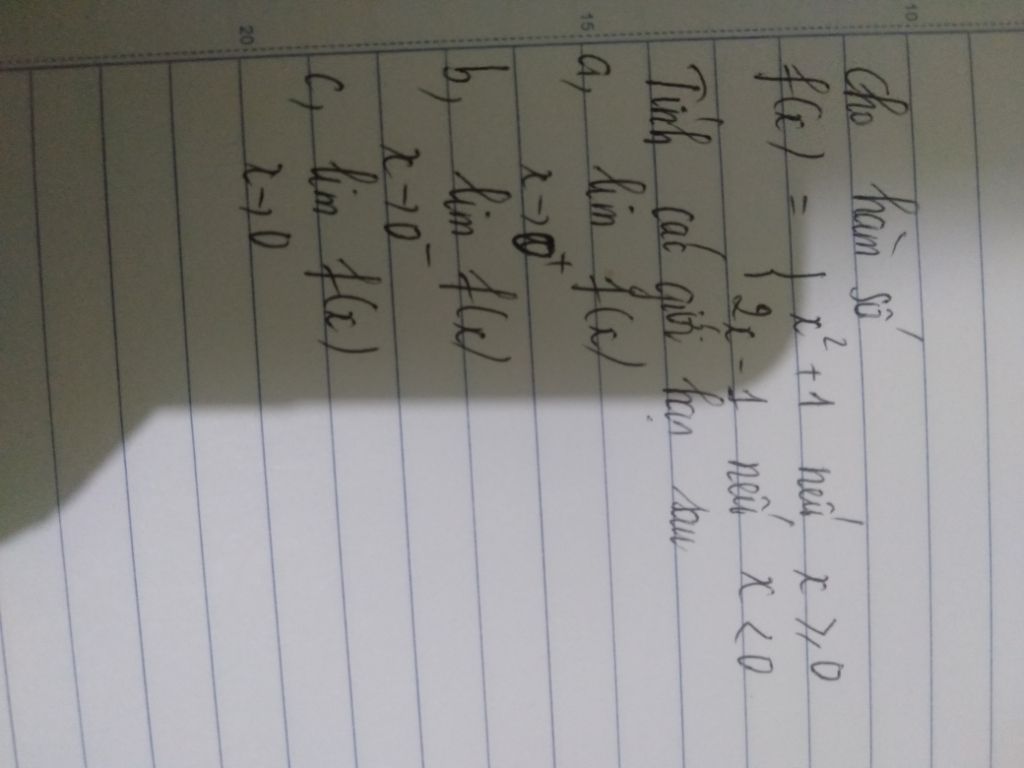 10
15
20
Cho hàm số
f(x) = { x² + 1 nếu x ≥ 0
{ 2x - 1 nếu x < 0
Tính các giới hạn sau
a, lim f(x)
x → 0⁺
b, lim f(x)
x → 0⁻
c, lim f(x)
x → 0